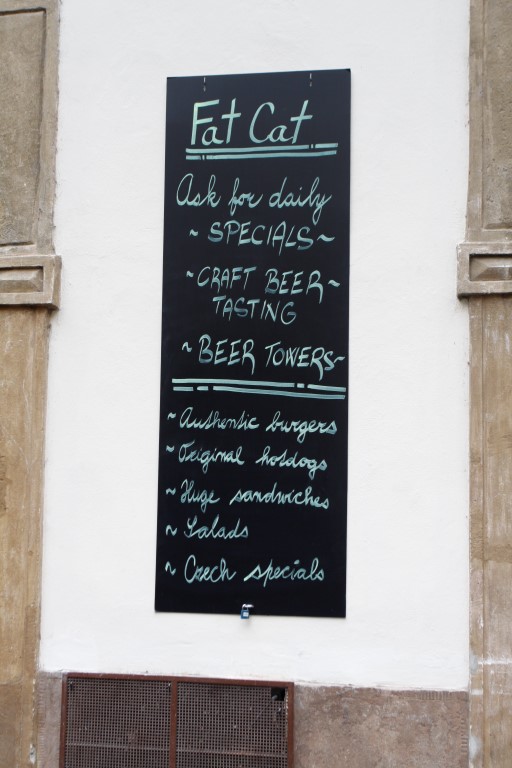 Fat Cat
Ask for daily
~ SPECIALS ~
~ CRAFT BEER ~
TASTING
~ BEER TOWERS ~
~ Authentic burgers
~ Original hotdogs
~ Huge sandwiches
~ Salads
~ Czech specials